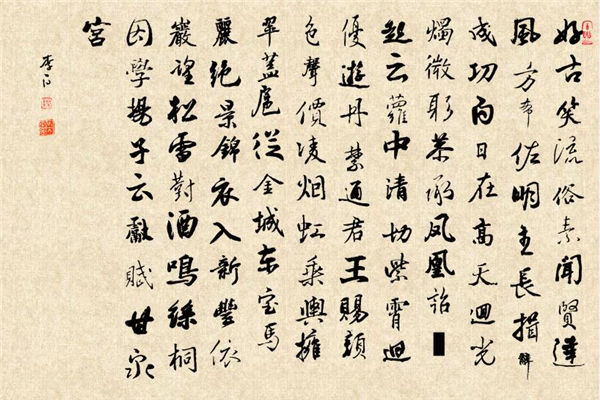 好古笑流俗素聞賢達
風方希佐明主長揖
成功白日在高天迴光
燭微躬恭承鳳凰詔
起云蘿中清切紫霄迴
優遊丹禁通君王賜顏
色聲價凌烟虹乘輿擁
翠蓋扈從金城東寶馬
麗絕景錦衣入新豐依
巖望松雪對酒鳴絲桐
因學揚子云獻賦甘泉
宮
李白